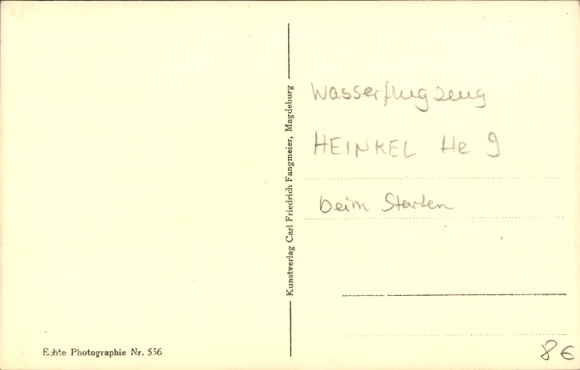 Wasserflugzeug
HEINKEL He 9
beim Starten
Kunstverlag Carl Friedrich Fangmeier, Magdeburg
Echte Photographie Nr. 556
8€